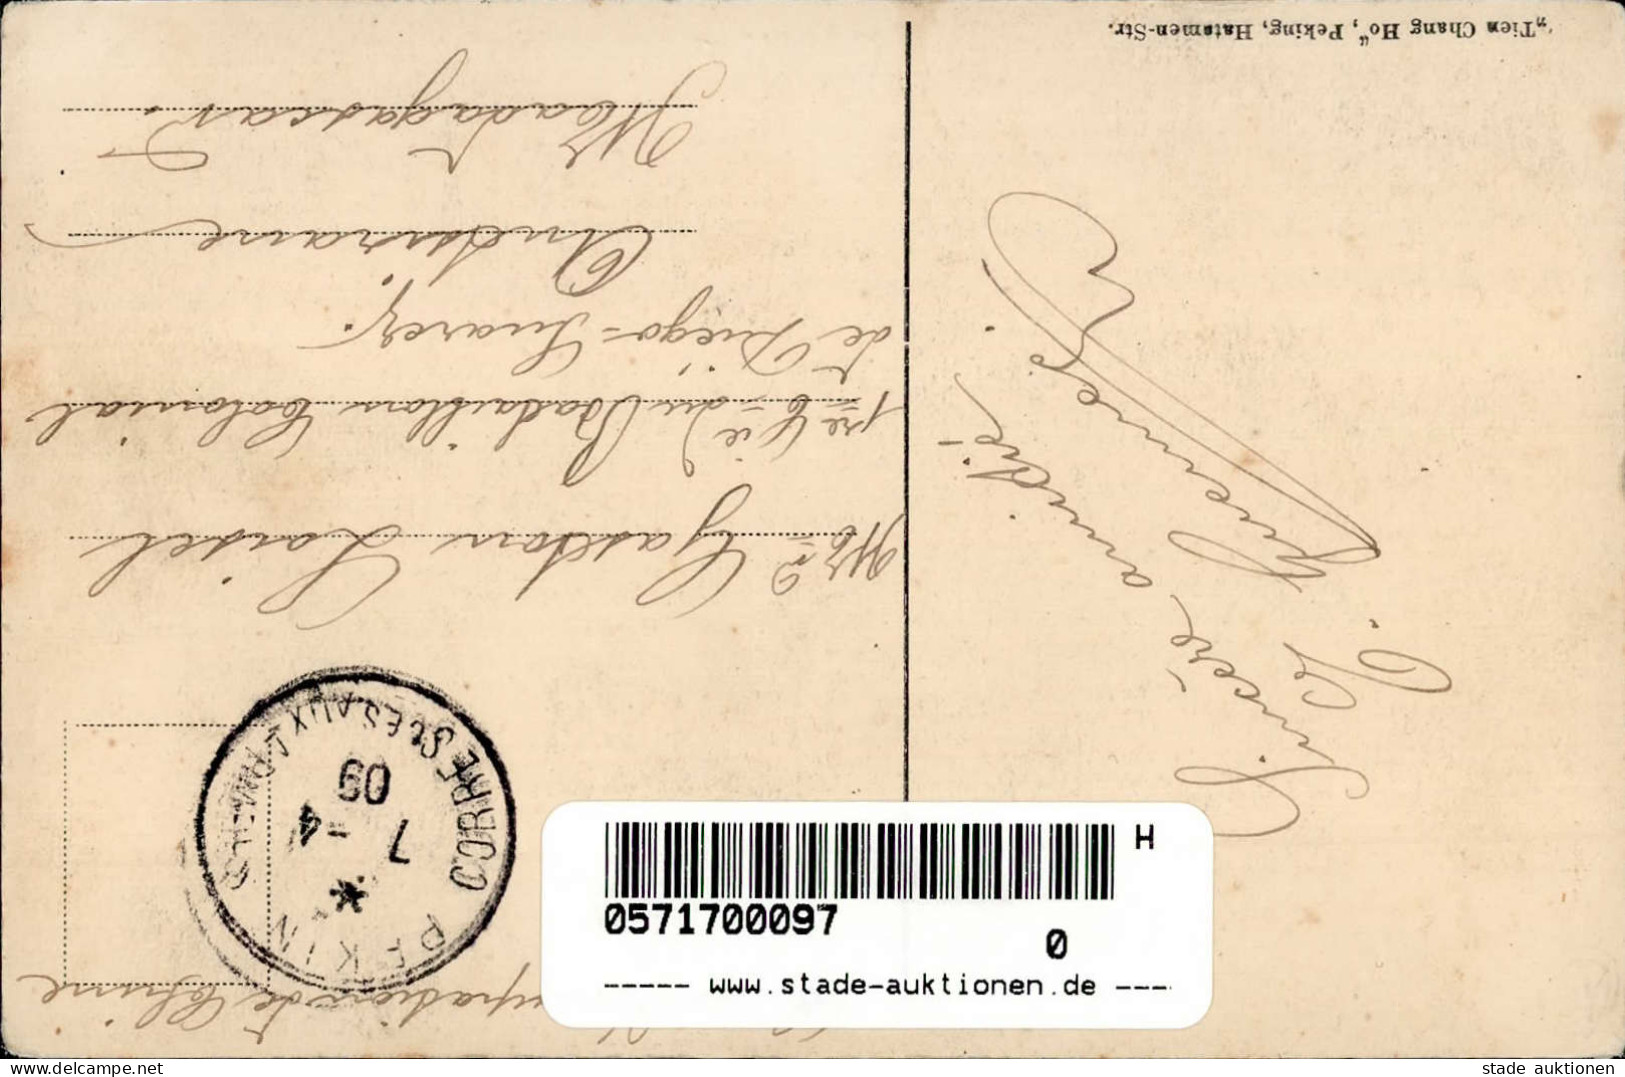 Corps d'occupation de Chine
PEKIN
CORRESP.CES AUX ARMEES
7 -4
09
Mr Gaston Loisel
1re Cie du Bataillon Colonial
de Diégo-Suarez.
Antsirane
Madagascar.
Sincère amitié
Ce
„Tien Chang Ho“, Peking, Hatamen-Str.
H
0571700097
0
----- www.stade-auktionen.de ----
delcampe.net
stade auktionen